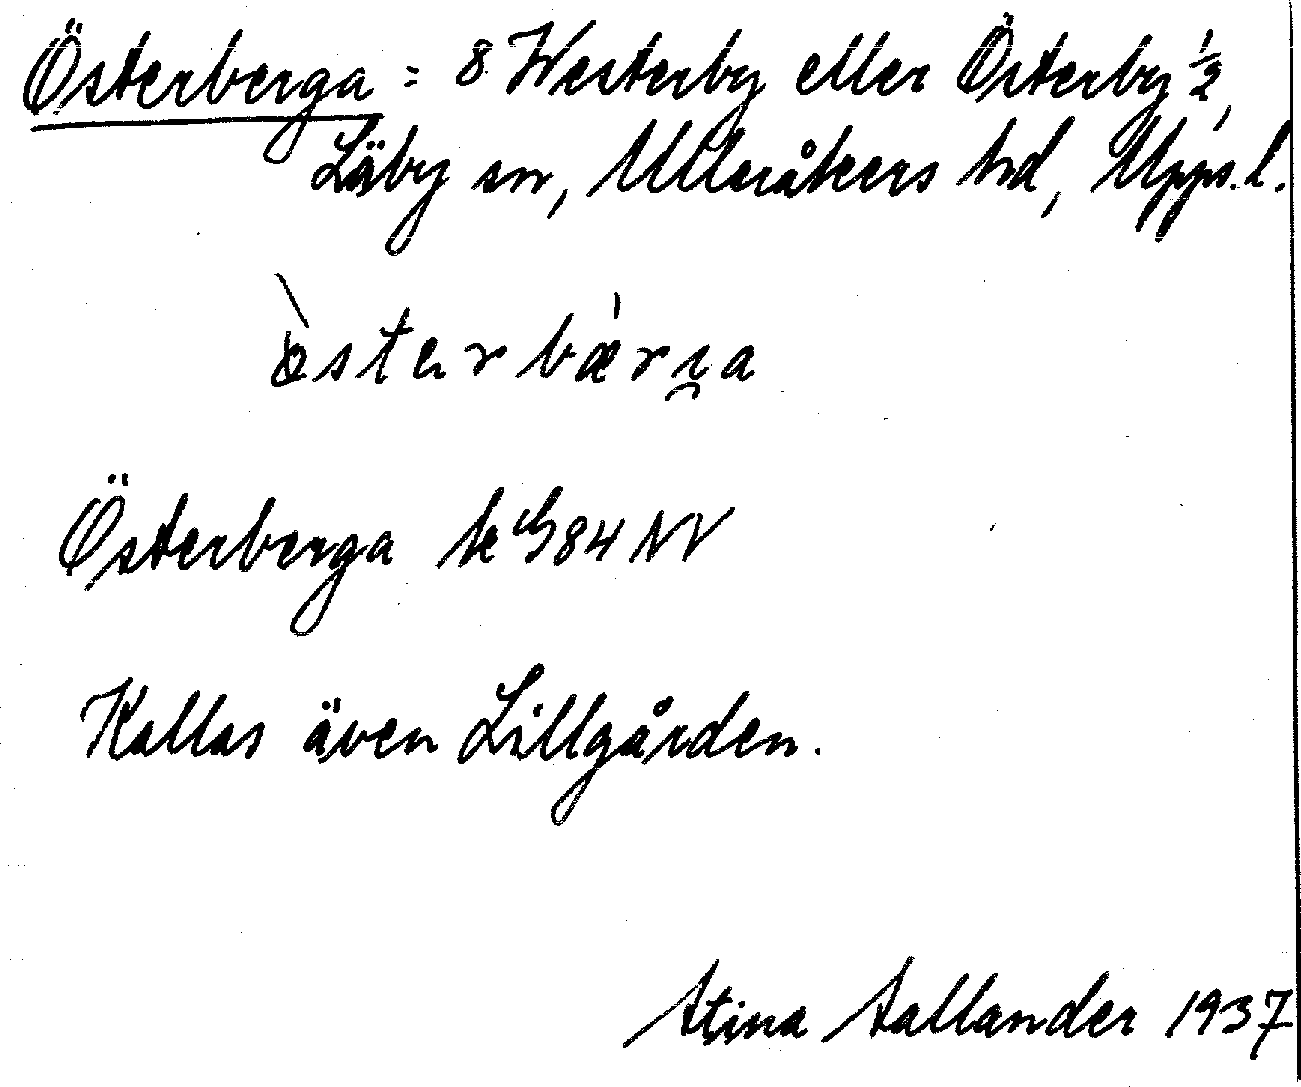 Österberga = 8 Westerby eller Österby ½,
Läby sn, Ulleråkers hd, Upps. l.
Österberga k G84 NV
Kallas även Lillgården.
Stina Sallander 1937